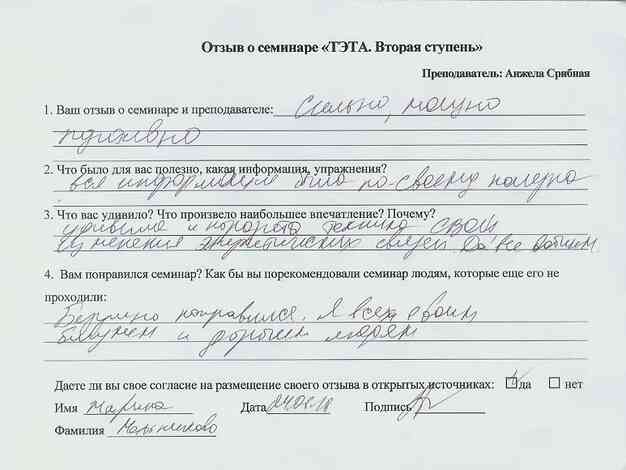 Отзыв о семинаре «ТЭТА. Вторая ступень»
Преподаватель: Анжела Срибная
1. Ваш отзыв о семинаре и преподавателе: Сильно, мощно
душевно
2. Что было для вас полезно, какая информация, упражнения?
вся информация была по-своему полезна
3. Что вас удивило? Что произвело наибольшее впечатление? Почему?
удивила и техника
энергетических связей Да все
4. Вам понравился семинар? Как бы вы порекомендовали семинар людям, которые еще его не
проходили:
понравился. Я всем своим
близким и дорогим людям
Даете ли вы свое согласие на размещение своего отзыва в открытых источниках: да нет
Имя Марина Дата Подпись
Фамилия